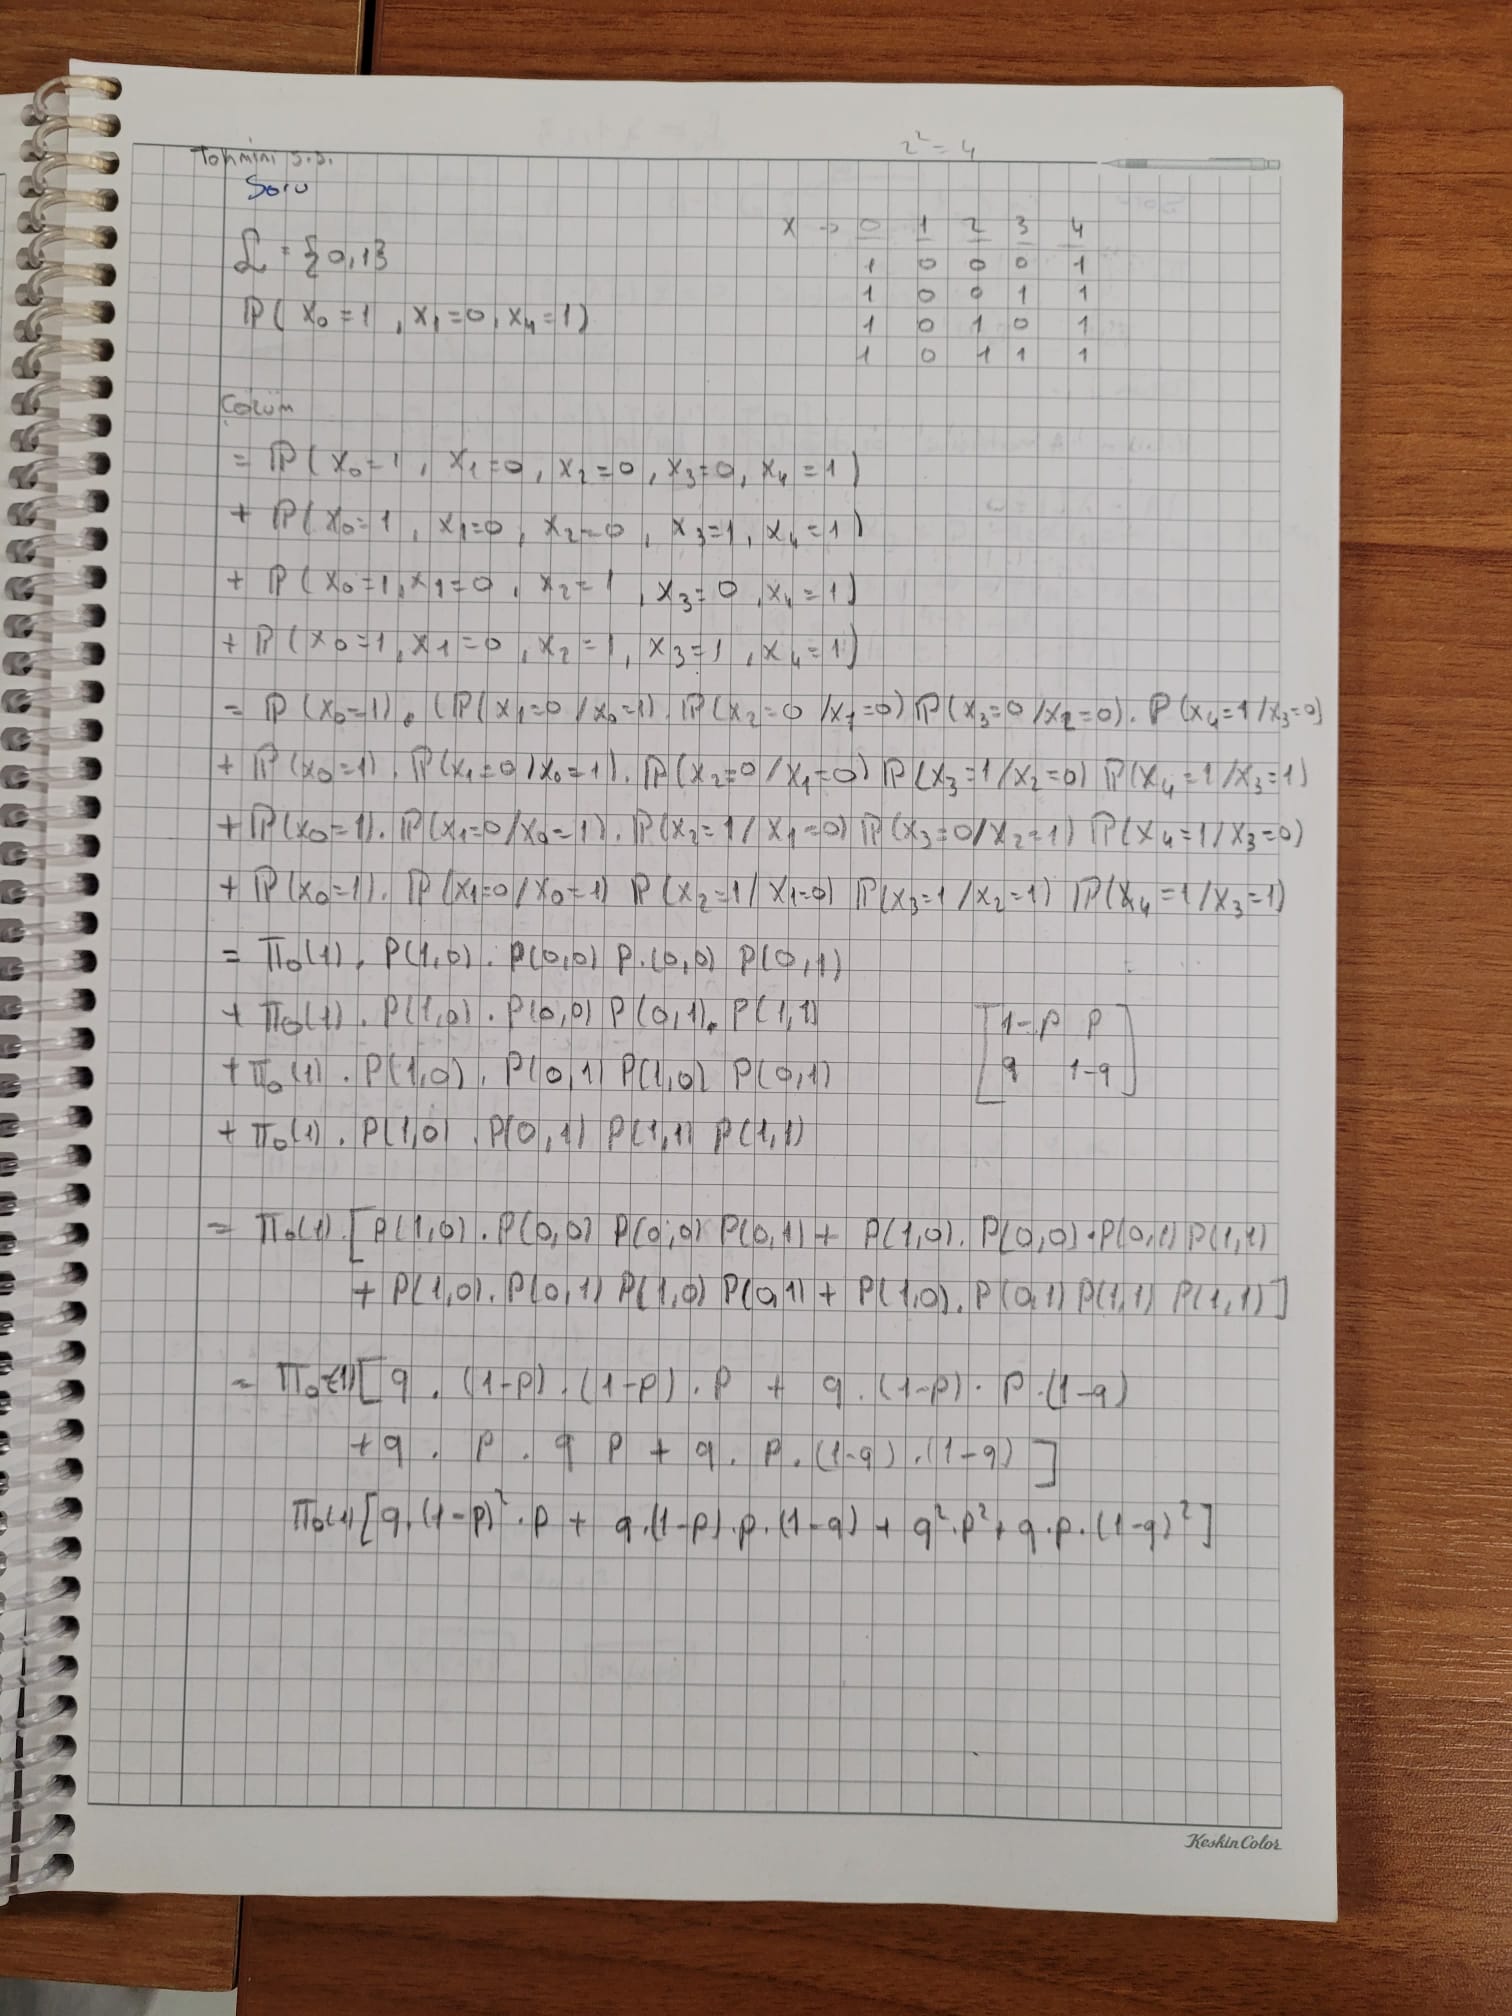 Tahmini S.S.
2² = 4
Soru
x → 0 1 2 3 4
1 0 0 0 1
1 0 0 1 1
1 0 1 0 1
1 0 1 1 1
= {0,1}
ℙ( x₀ = 1 , x₁ = 0, x₄ = 1)
Çözüm
= ℙ( x₀ = 1 , x₁ = 0, x₂ = 0, x₃ = 0, x₄ = 1)
+ ℙ( x₀ = 1 , x₁ = 0, x₂ = 0 , x₃ = 1, x₄ = 1)
+ ℙ( x₀ = 1, x₁ = 0 , x₂ = 1 , x₃ = 0 , x₄ = 1)
+ ℙ( x₀ = 1, x₁ = 0 , x₂ = 1, x₃ = 1 , x₄ = 1)
= ℙ (x₀=1) . (ℙ( x₁=0 / x₀=1) . ℙ(x₂=0 / x₁=0) ℙ(x₃=0 / x₂=0) . ℙ (x₄=1 / x₃=0)
+ ℙ(x₀=1) . ℙ(x₁=0 / x₀=1) . ℙ(x₂=0 / x₁=0) ℙ(x₃=1 / x₂=0) ℙ(x₄=1 / x₃=1)
+ ℙ(x₀=1) . ℙ(x₁=0 / x₀=1) . ℙ(x₂=1 / x₁=0) ℙ(x₃=0 / x₂=1) ℙ(x₄=1 / x₃=0)
+ ℙ(x₀=1) . ℙ(x₁=0 / x₀=1) ℙ(x₂=1 / x₁=0) ℙ(x₃=1 / x₂=1) ℙ(x₄=1 / x₃=1)
= π₀(1) . P(1,0) . P(0,0) P.(0,0) P(0,1)
+ π₀(1) . P(1,0) . P(0,0) P(0,1) . P(1,1)
+ π₀(1) . P(1,0) . P(0,1) P(1,0) P(0,1)
+ π₀(1) . P(1,0) . P(0,1) P(1,1) P(1,1)
[1-p p
q 1-q]
= π₀(1) . [P(1,0) . P(0,0) P(0,0) P(0,1) + P(1,0) . P(0,0) . P(0,1) P(1,1)
+ P(1,0) . P(0,1) P(1,0) P(0,1) + P(1,0) . P(0,1) P(1,1) P(1,1)]
= π₀(1) [q . (1-p) . (1-p) . p + q . (1-p) . p . (1-q)
+ q . p . q p + q . p . (1-q) . (1-q) ]
π₀(1) [q . (1-p)² . p + q . (1-p) . p . (1-q) + q² . p² + q . p . (1-q)²]
KeskinColor